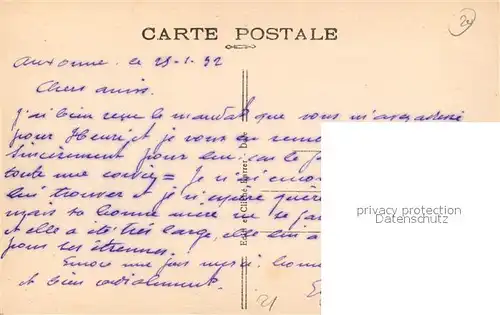 CARTE POSTALE
Auxonne, le 25-1-32
Chers amis.
J'ai bien reçu le mandat que vous m'avez adressé
pour Henri, et je vous en remer
sincèrement pour lui, car le
toute une corvée = Je n'ai encore
lui trouver et je n'espère guère
mais sa bonne mère ne se fai
et elle a été très large, elle lui a
pour ses étrennes.
Encore une fois merci. bonne
et bien cordialement.
Edit. et Cliché, Karrer - Dole
privacy protection
Ansichtskartenversand.com